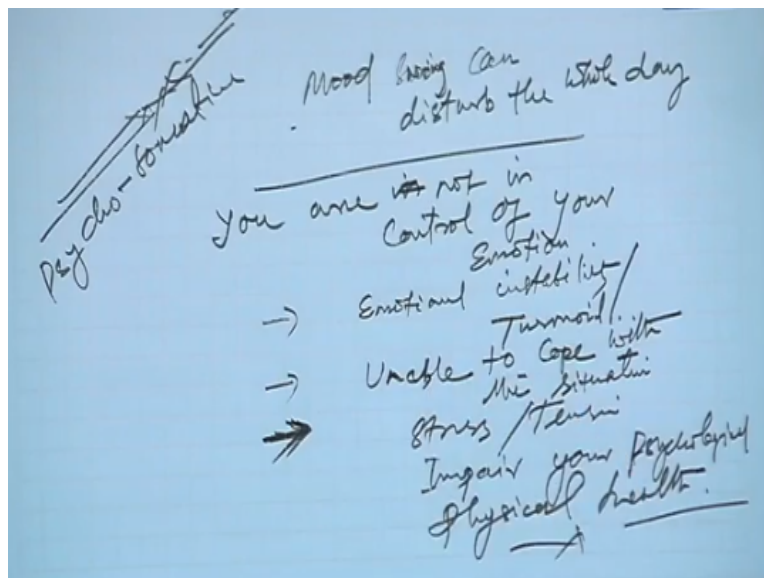 Mood swing can
disturb the whole day
Psycho-somatic
You are not in
Control of your
Emotion
→ Emotional instability/
Turmoil
→ Unable to Cope with
the situation
→ Stress/Tension
Impair your Psychological
Physical health.